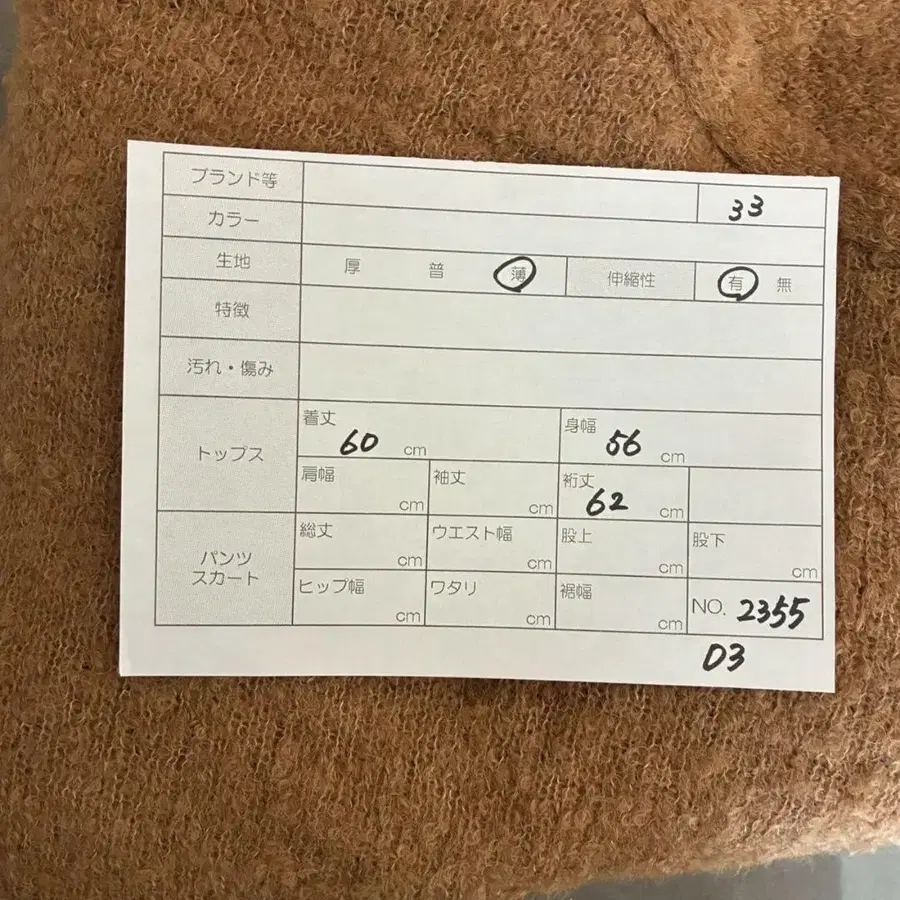 ブランド等 33
カラー
生地 厚 普 薄 伸縮性 有 無
特徴
汚れ・傷み
トップス
着丈 60 cm 身幅 56 cm
肩幅 cm 袖丈 cm 裄丈 62 cm
パンツ
スカート
総丈 cm ウエスト幅 cm 股上 cm 股下 cm
ヒップ幅 cm ワタリ cm 裾幅 cm NO. 2355
D3